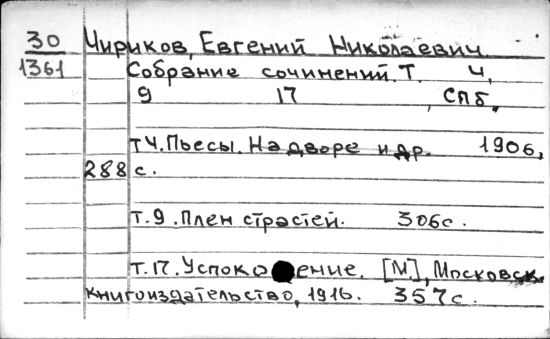 30 Чириков, Евгений Николаевич
1361 Собрание сочинений. Т. 4,
9 17, СПб,
т4. Пьесы. На дворе и др. 1906,
288 с.
т.9. Плен страстей. 306с.
т.17. Успокоение. [М], Московск.
книгоиздательство, 1916. 357с.